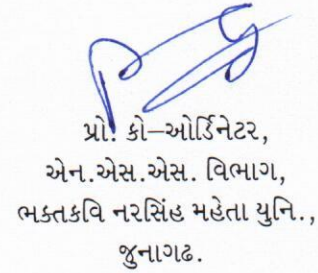 પ્રો. કો–ઓર્ડિનેટર,
એન.એસ.એસ. વિભાગ,
ભક્તકવિ નરસિંહ મહેતા યુનિ.,
જુનાગઢ.